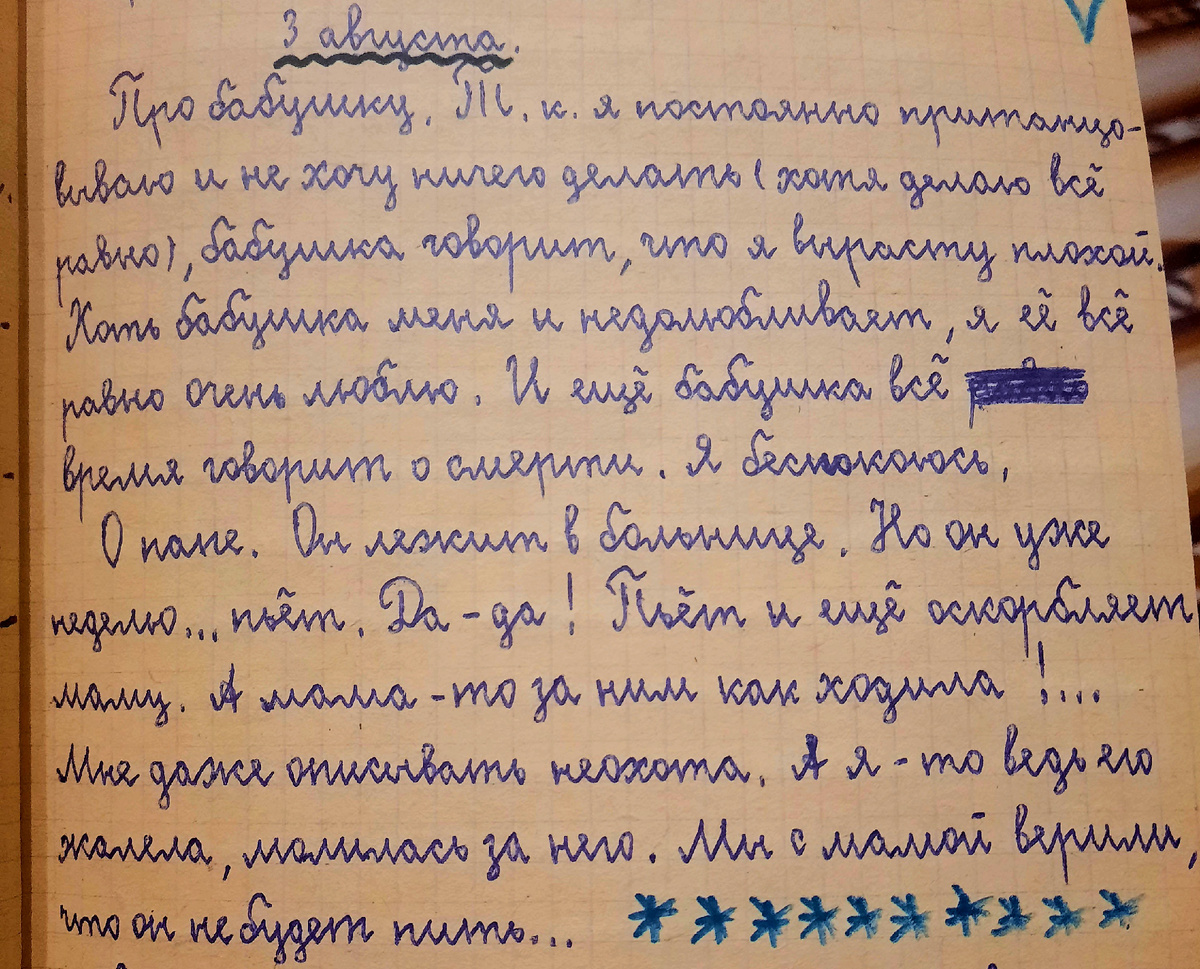 3 августа.
Про бабушку. Т. к. я постоянно пританцо-
вываю и не хочу ничего делать (хотя делаю всё
равно), бабушка говорит, что я вырасту плохой.
Хоть бабушка меня и недолюбливает, я её всё
равно очень люблю. И ещё бабушка всё
время говорит о смерти. Я беспокоюсь,
О папе. Он лежит в больнице. Но он уже
неделю... пьёт. Да - да! Пьёт и ещё оскорбляет
маму. А мама - то за ним как ходила!...
Мне даже описывать неохота. А я - то ведь его
жалела, молилась за него. Мы с мамой верили,
что он не будет пить... **********